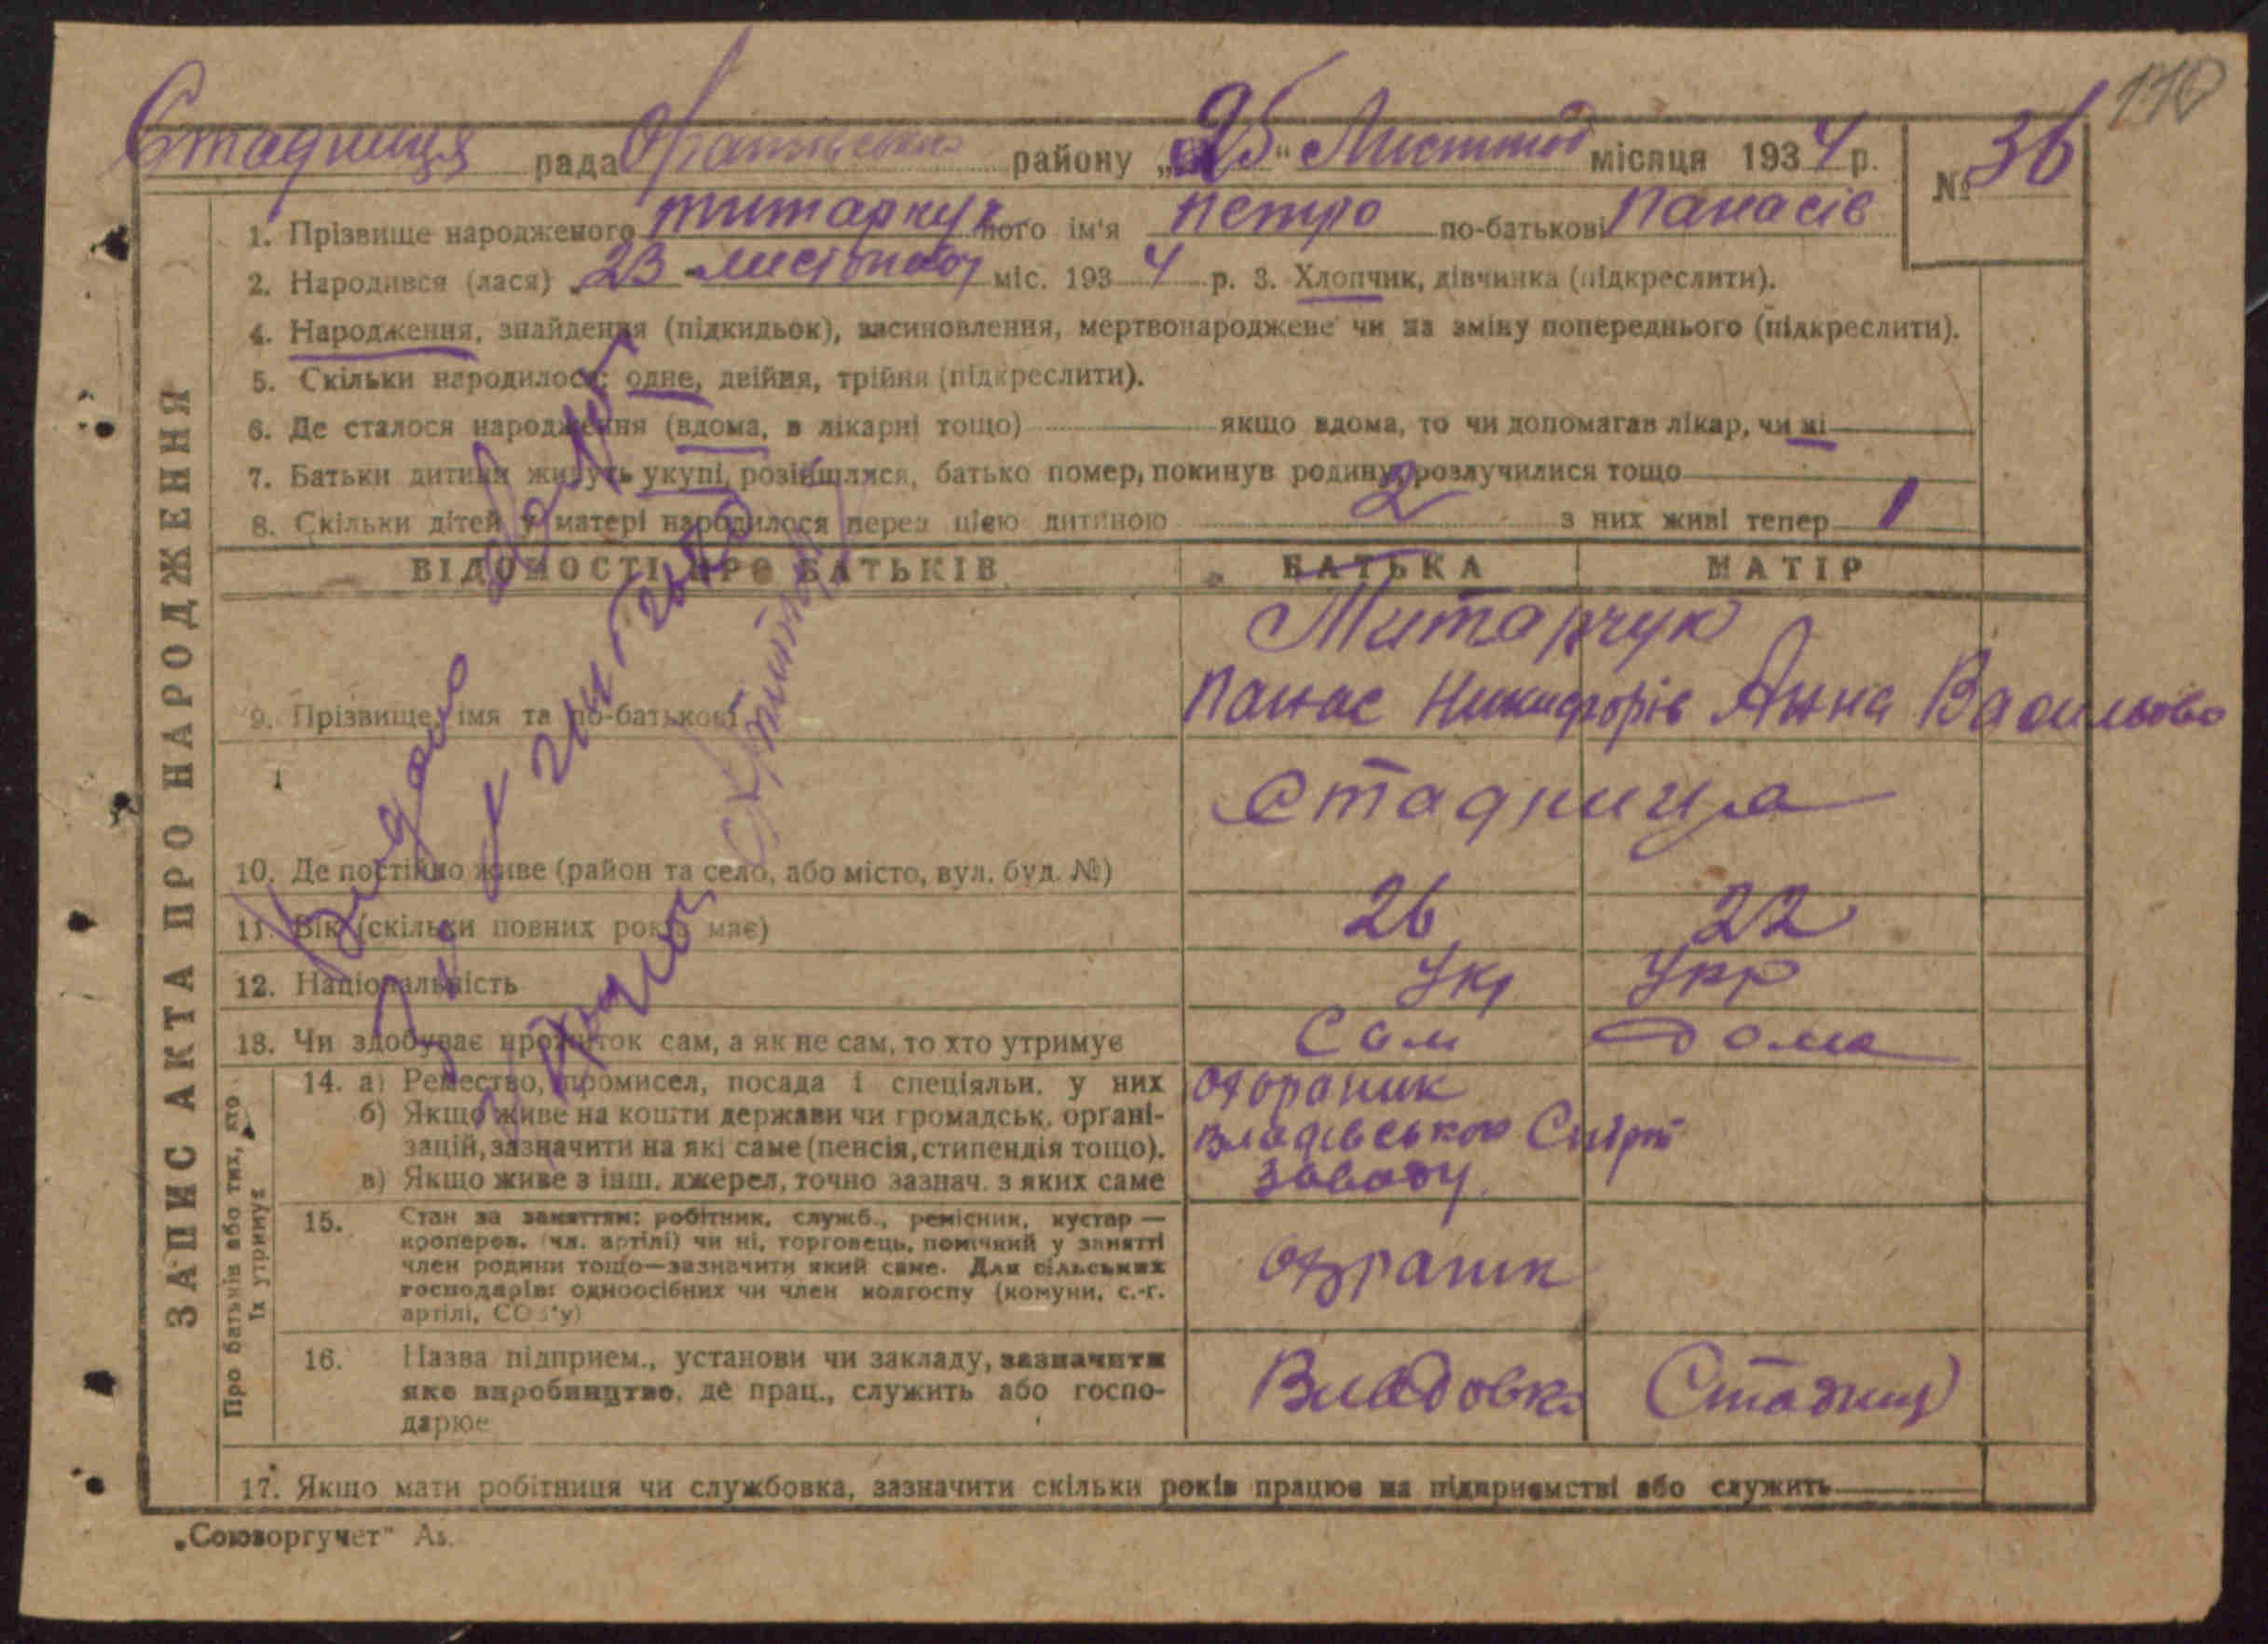 110
Стадниця рада Оратівського району „25" Листопад місяця 1934 р. № 36
1. Прізвище народженого титарчук його ім'я петро по-батькові Панасів
2. Народився (лася) „23 листопад міс. 1934 р. 3. Хлопчик, дівчинка (підкреслити).
4. Народження, знайдення (підкидьок), васиновлення, мертвонароджене чи на зміну попереднього (підкреслити).
5. Скільки народилося: одне, двійня, трійня (підкреслити).
6. Де сталося народження (вдома, в лікарні тощо) якщо вдома, то чи допомагав лікар, чи ні
7. Батьки дитини живуть укупі, розійшлися, батько помер, покинув родину, розлучилися тощо
8. Скільки дітей у матері народилося перед цією дитиною 2 з них живі тепер 1
ЗАПИС АКТА ПРО НАРОДЖЕННЯ
ВІДОМОСТІ ПРО БАТЬКІВ БАТЬКА МАТІР
Титарчук
9. Прізвище, імя та по-батькові Панас Никифорів Анна Васильова
Стадница
10. Де постійно живе (район та село, або місто, вул. буд. №)
11. Вік (скільки повних років має) 26 22
12. Національність Укр Укр
13. Чи здобуває прожиток сам, а як не сам, то хто утримує Сам дома
Про батьків або тих, хто їх утримує
14. а) Ремество, промисел, посада і спеціяльн. у них
б) Якщо живе на кошти держави чи громадськ. органі-
зацій, зазначити на які саме (пенсія, стипендія тощо).
в) Якщо живе з інш. джерел, точно зазнач. з яких саме
охораник
Владівського Спирт
Заводу.
15. Стан за заняттям: робітник, служб., ремісник, кустар —
кооперов. (чл. артілі) чи ні, торговець, помічний у занятті
член родини тощо—зазначити який саме. Для сільських
господарів: одноосібних чи член колгоспу (комуни, с.-г.
артілі, СОЗ'у)
охраник
16. Назва підприєм., установи чи закладу, зазначити
яке виробництво, де прац., служить або госпо-
дарює
Владовка Стадниц
17. Якщо мати робітниця чи службовка, зазначити скільки років працює на підприємстві або служить
„Союзоргучет" Аз.
Видано